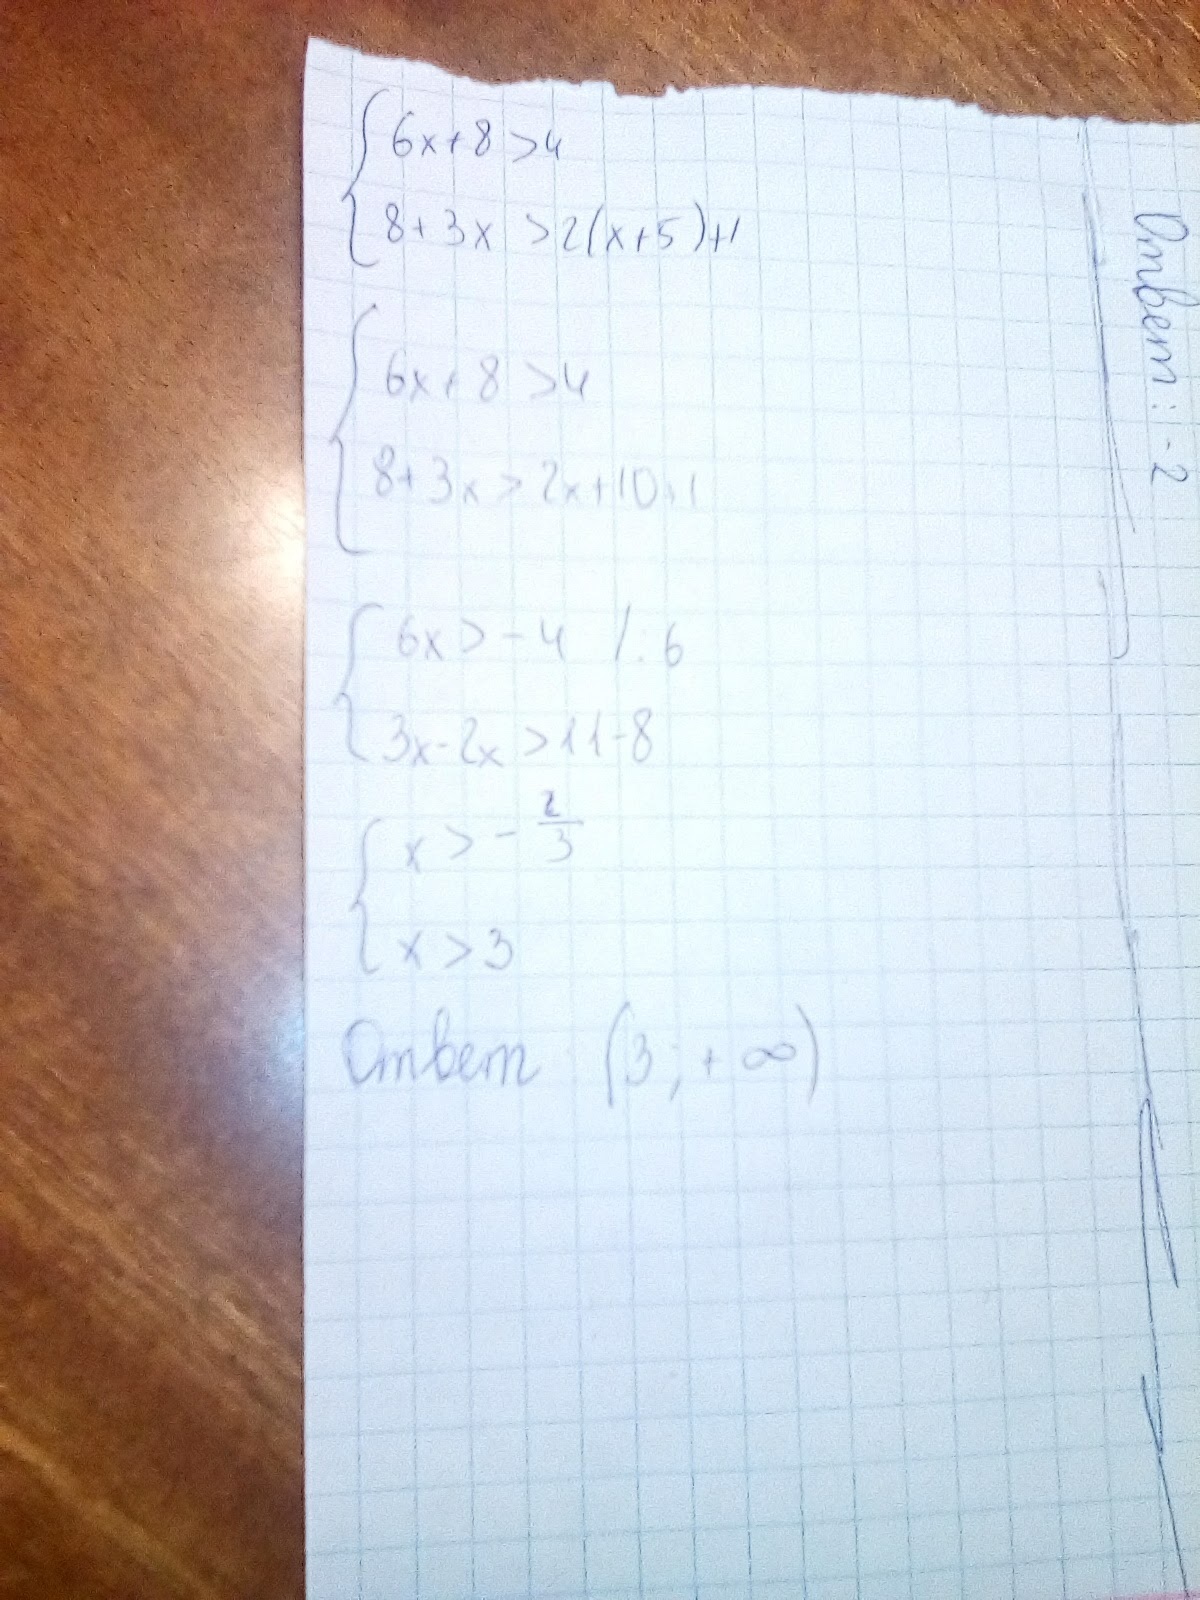 6x+8>4
8+3x>2(x+5)+1
6x+8>4
8+3x>2x+10+1
6x>-4 /:6
3x-2x>11-8
x>-2/3
x>3
Ответ: (3;+∞)
Ответ: -2